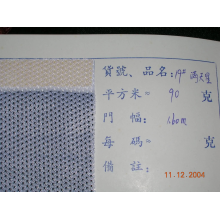 貨號、品名:19# 滿天星
平方米= 90 克
門 幅: 160m
每 碼= 克
備 註:
11.12.2004